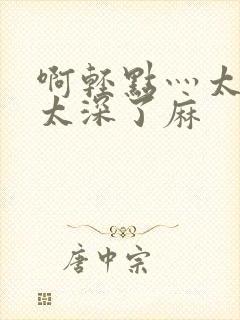 啊轻點灬太
太深了麻
唐中宗